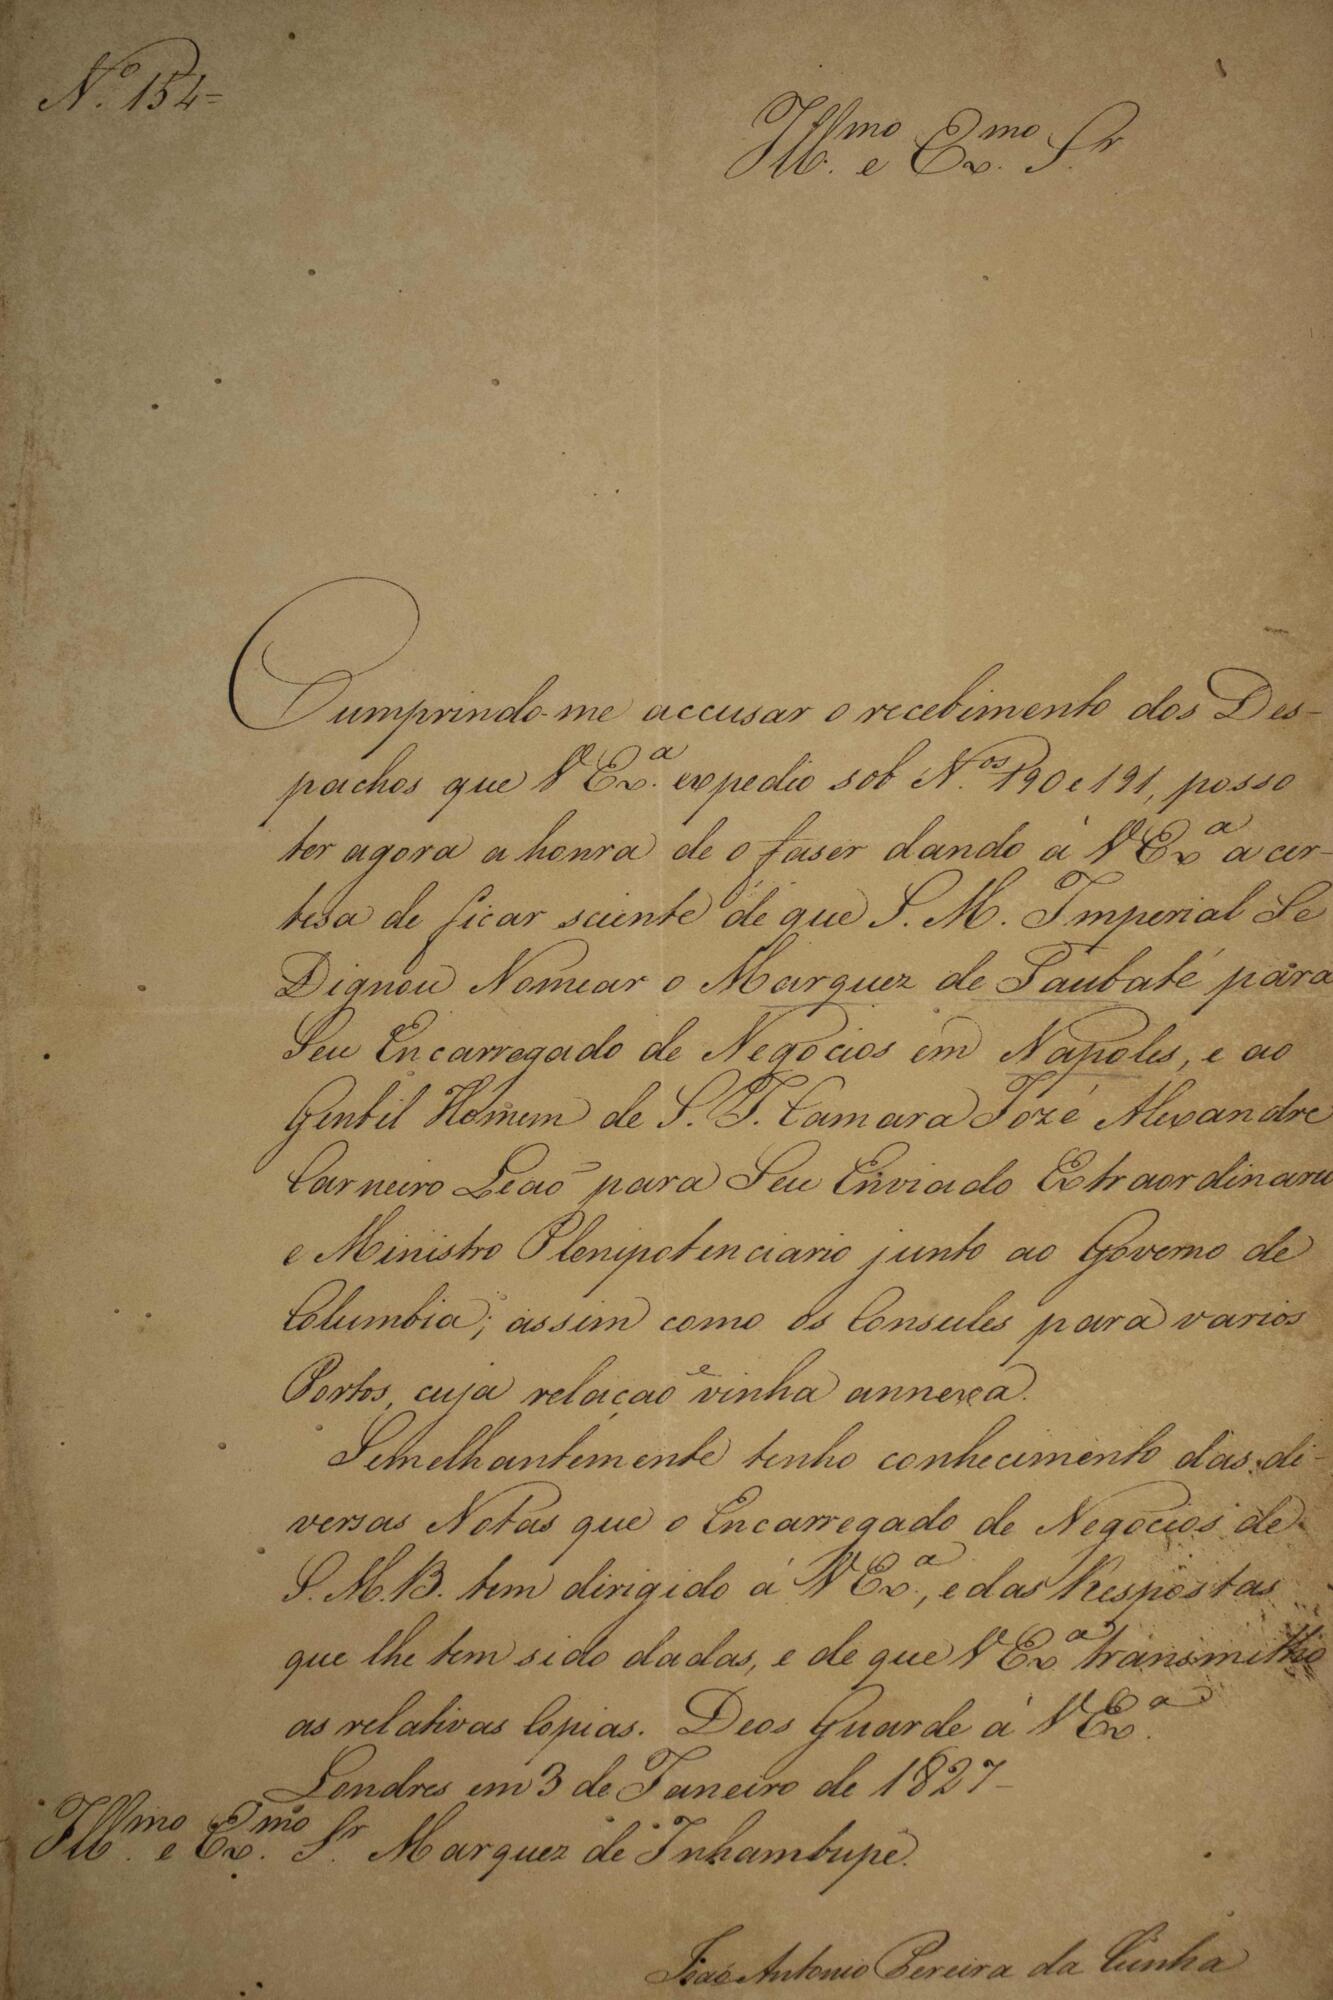 Nº 154=
Illmo. e Exmo. Sr
Cumprindo-me accusar o recebimento dos Des-
pachos que V Exa. expedio sob Nos. 190 e 191, posso
ter agora a honra de o faser dando à V Exa a cer-
tesa de ficar sciente de que S. M. Imperial Se
Dignou Nomear o Marquez de Taubaté para
Seu Encarregado de Negocios em Napoles, e ao
Gentil Homem de S. I. Camara Jozé Alexandre
Carneiro Leaõ para Seu Enviado Extraordinario
e Ministro Plenipotenciario junto ao Governo de
Columbia; assim como os Consules para varios
Portos, cuja relaçaõ vinha annexa.
Semelhantemente tenho conhecimento das di-
versas Notas que o Encarregado de Negocios de
S. M. B. tem dirigido á V Exa., e das Respostas
que lhe tem sido dadas, e de que V Exa transmittio
as relativas Copias. Deos Guarde á V Exa.
Londres em 3 de Janeiro de 1827
Illmo. e Exmo. Sr. Marquez de Inhambupe.
Joaõ Antonio Pereira da Cunha